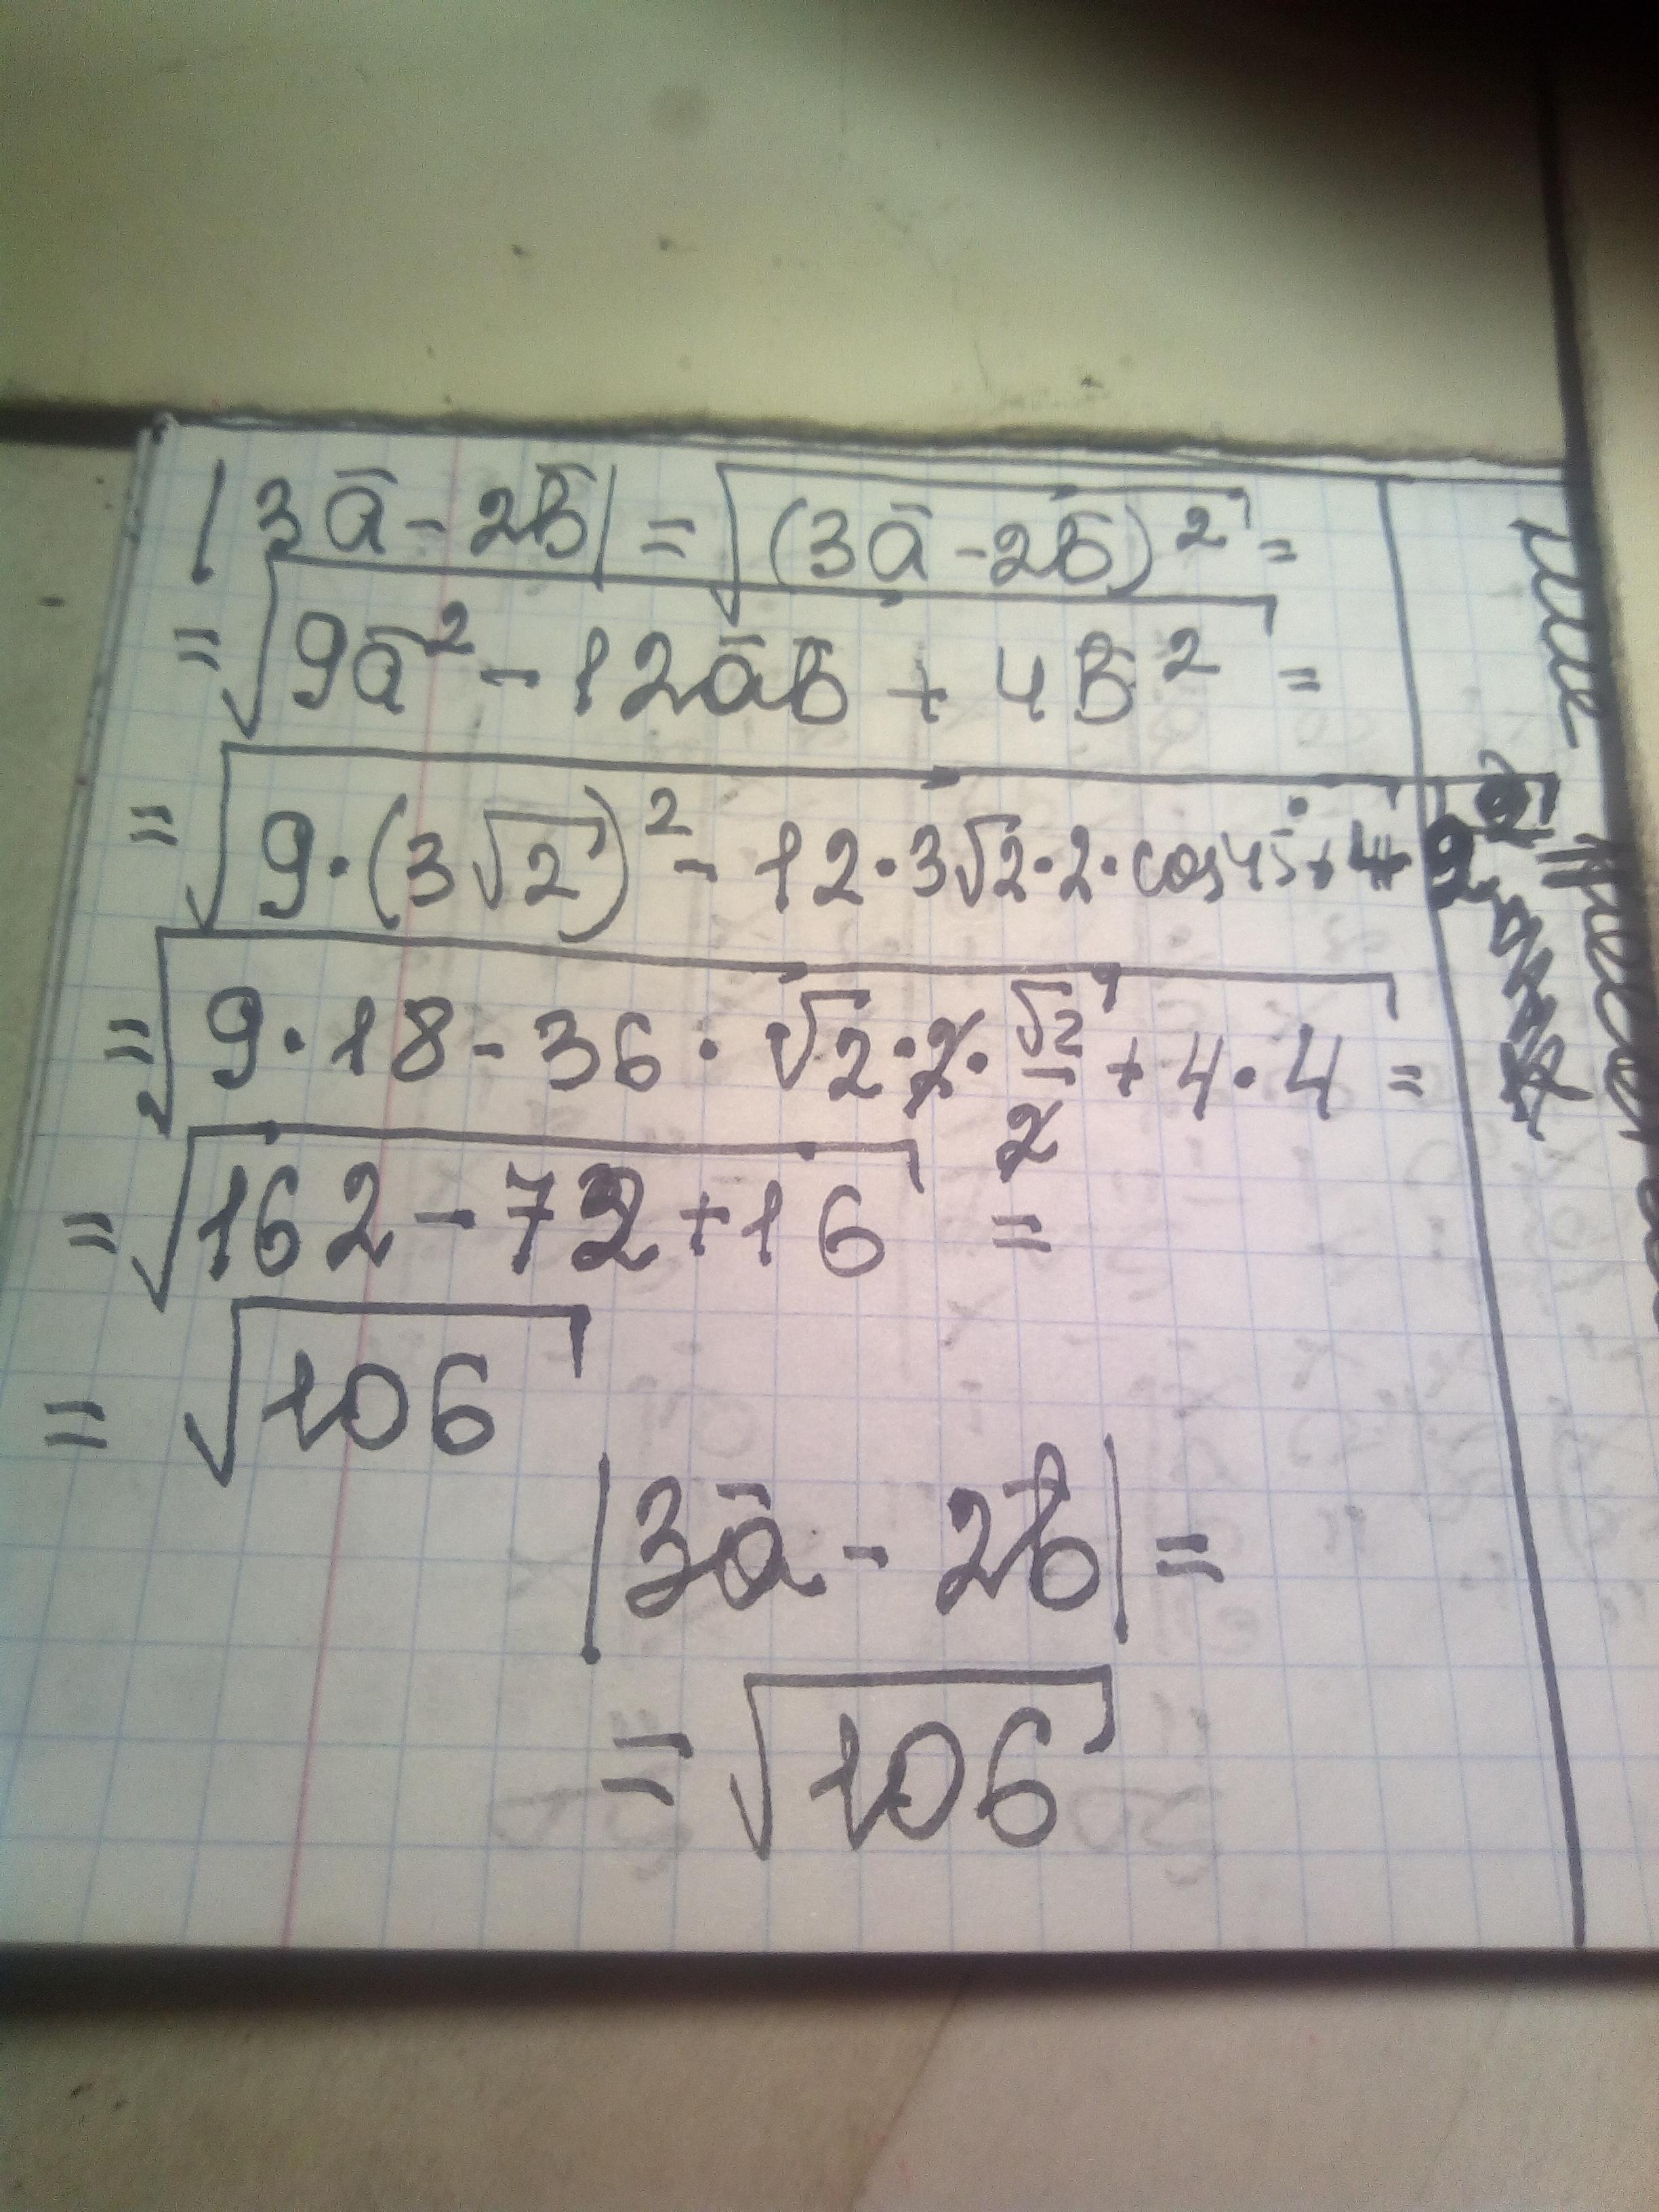 |3a̅ - 2b̅| = √(3a̅ - 2b̅)² =
= √9a̅² - 12a̅b̅ + 4b̅² =
= √9·(3√2)² - 12·3√2·2·cos45° + 4·2²
= √9·18 - 36·√2·2·√2/2 + 4·4 =
= √162 - 72 + 16 =
= √106
|3a̅ - 2b̅| =
= √106